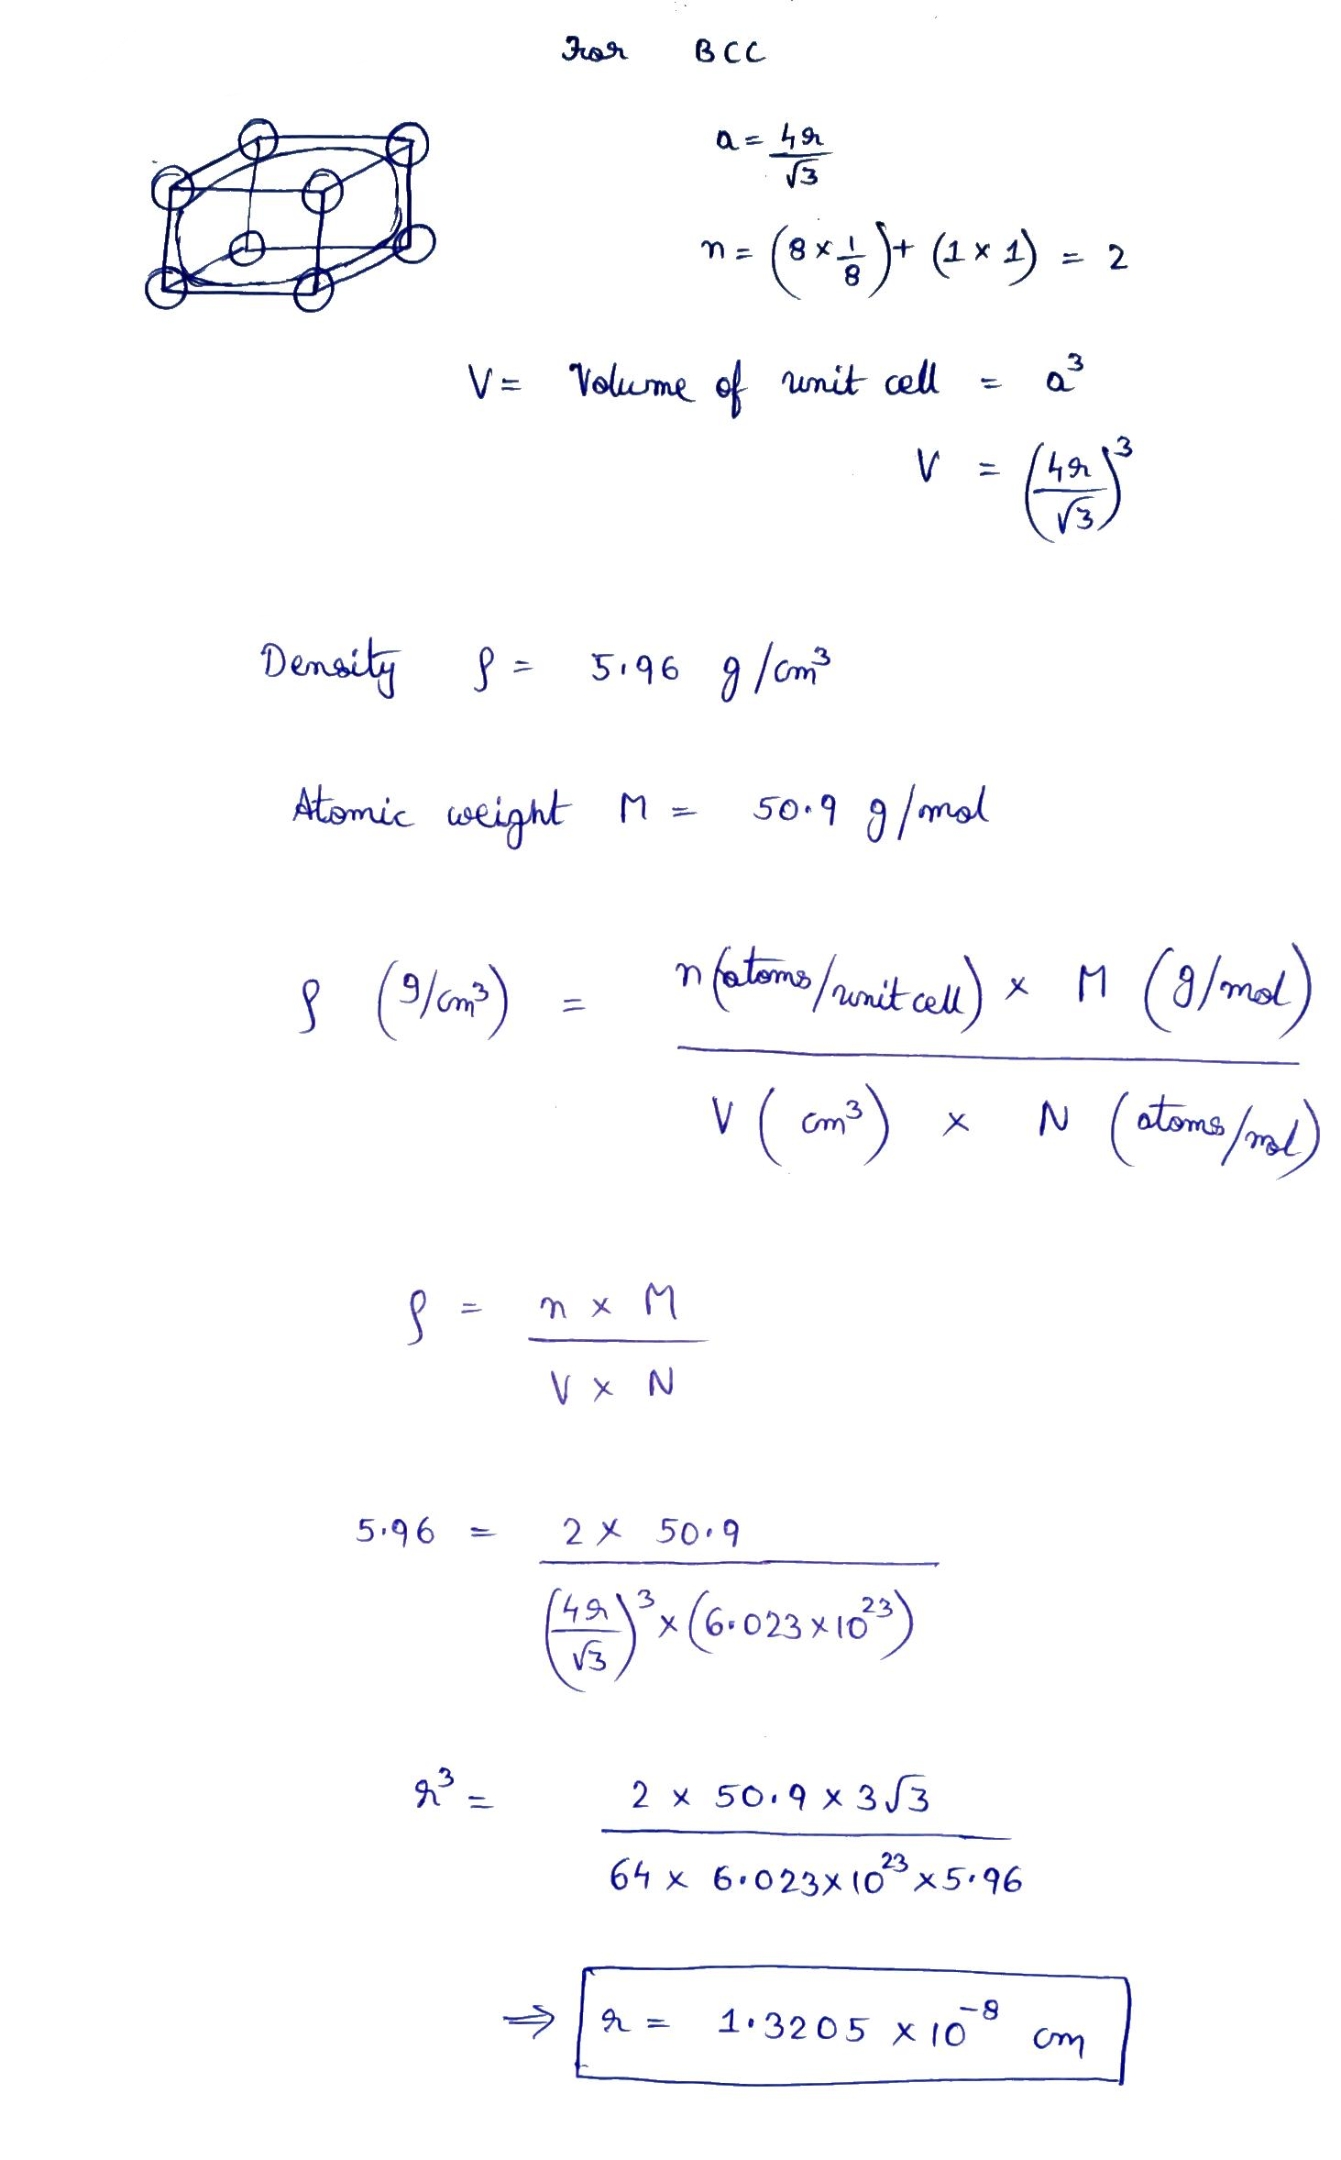 For BCC
a = 4r/√3
n = (8 × 1/8) + (1 × 1) = 2
V = Volume of unit cell = a³
V = (4r/√3)³
Density ρ = 5.96 g/cm³
Atomic weight M = 50.9 g/mol
ρ (g/cm³) = n (atoms/unit cell) × M (g/mol) / V (cm³) × N (atoms/mol)
ρ = n × M / V × N
5.96 = 2 × 50.9 / (4r/√3)³ × (6.023 × 10²³)
r³ = 2 × 50.9 × 3√3 / 64 × 6.023 × 10²³ × 5.96
⇒ r = 1.3205 × 10⁻⁸ cm